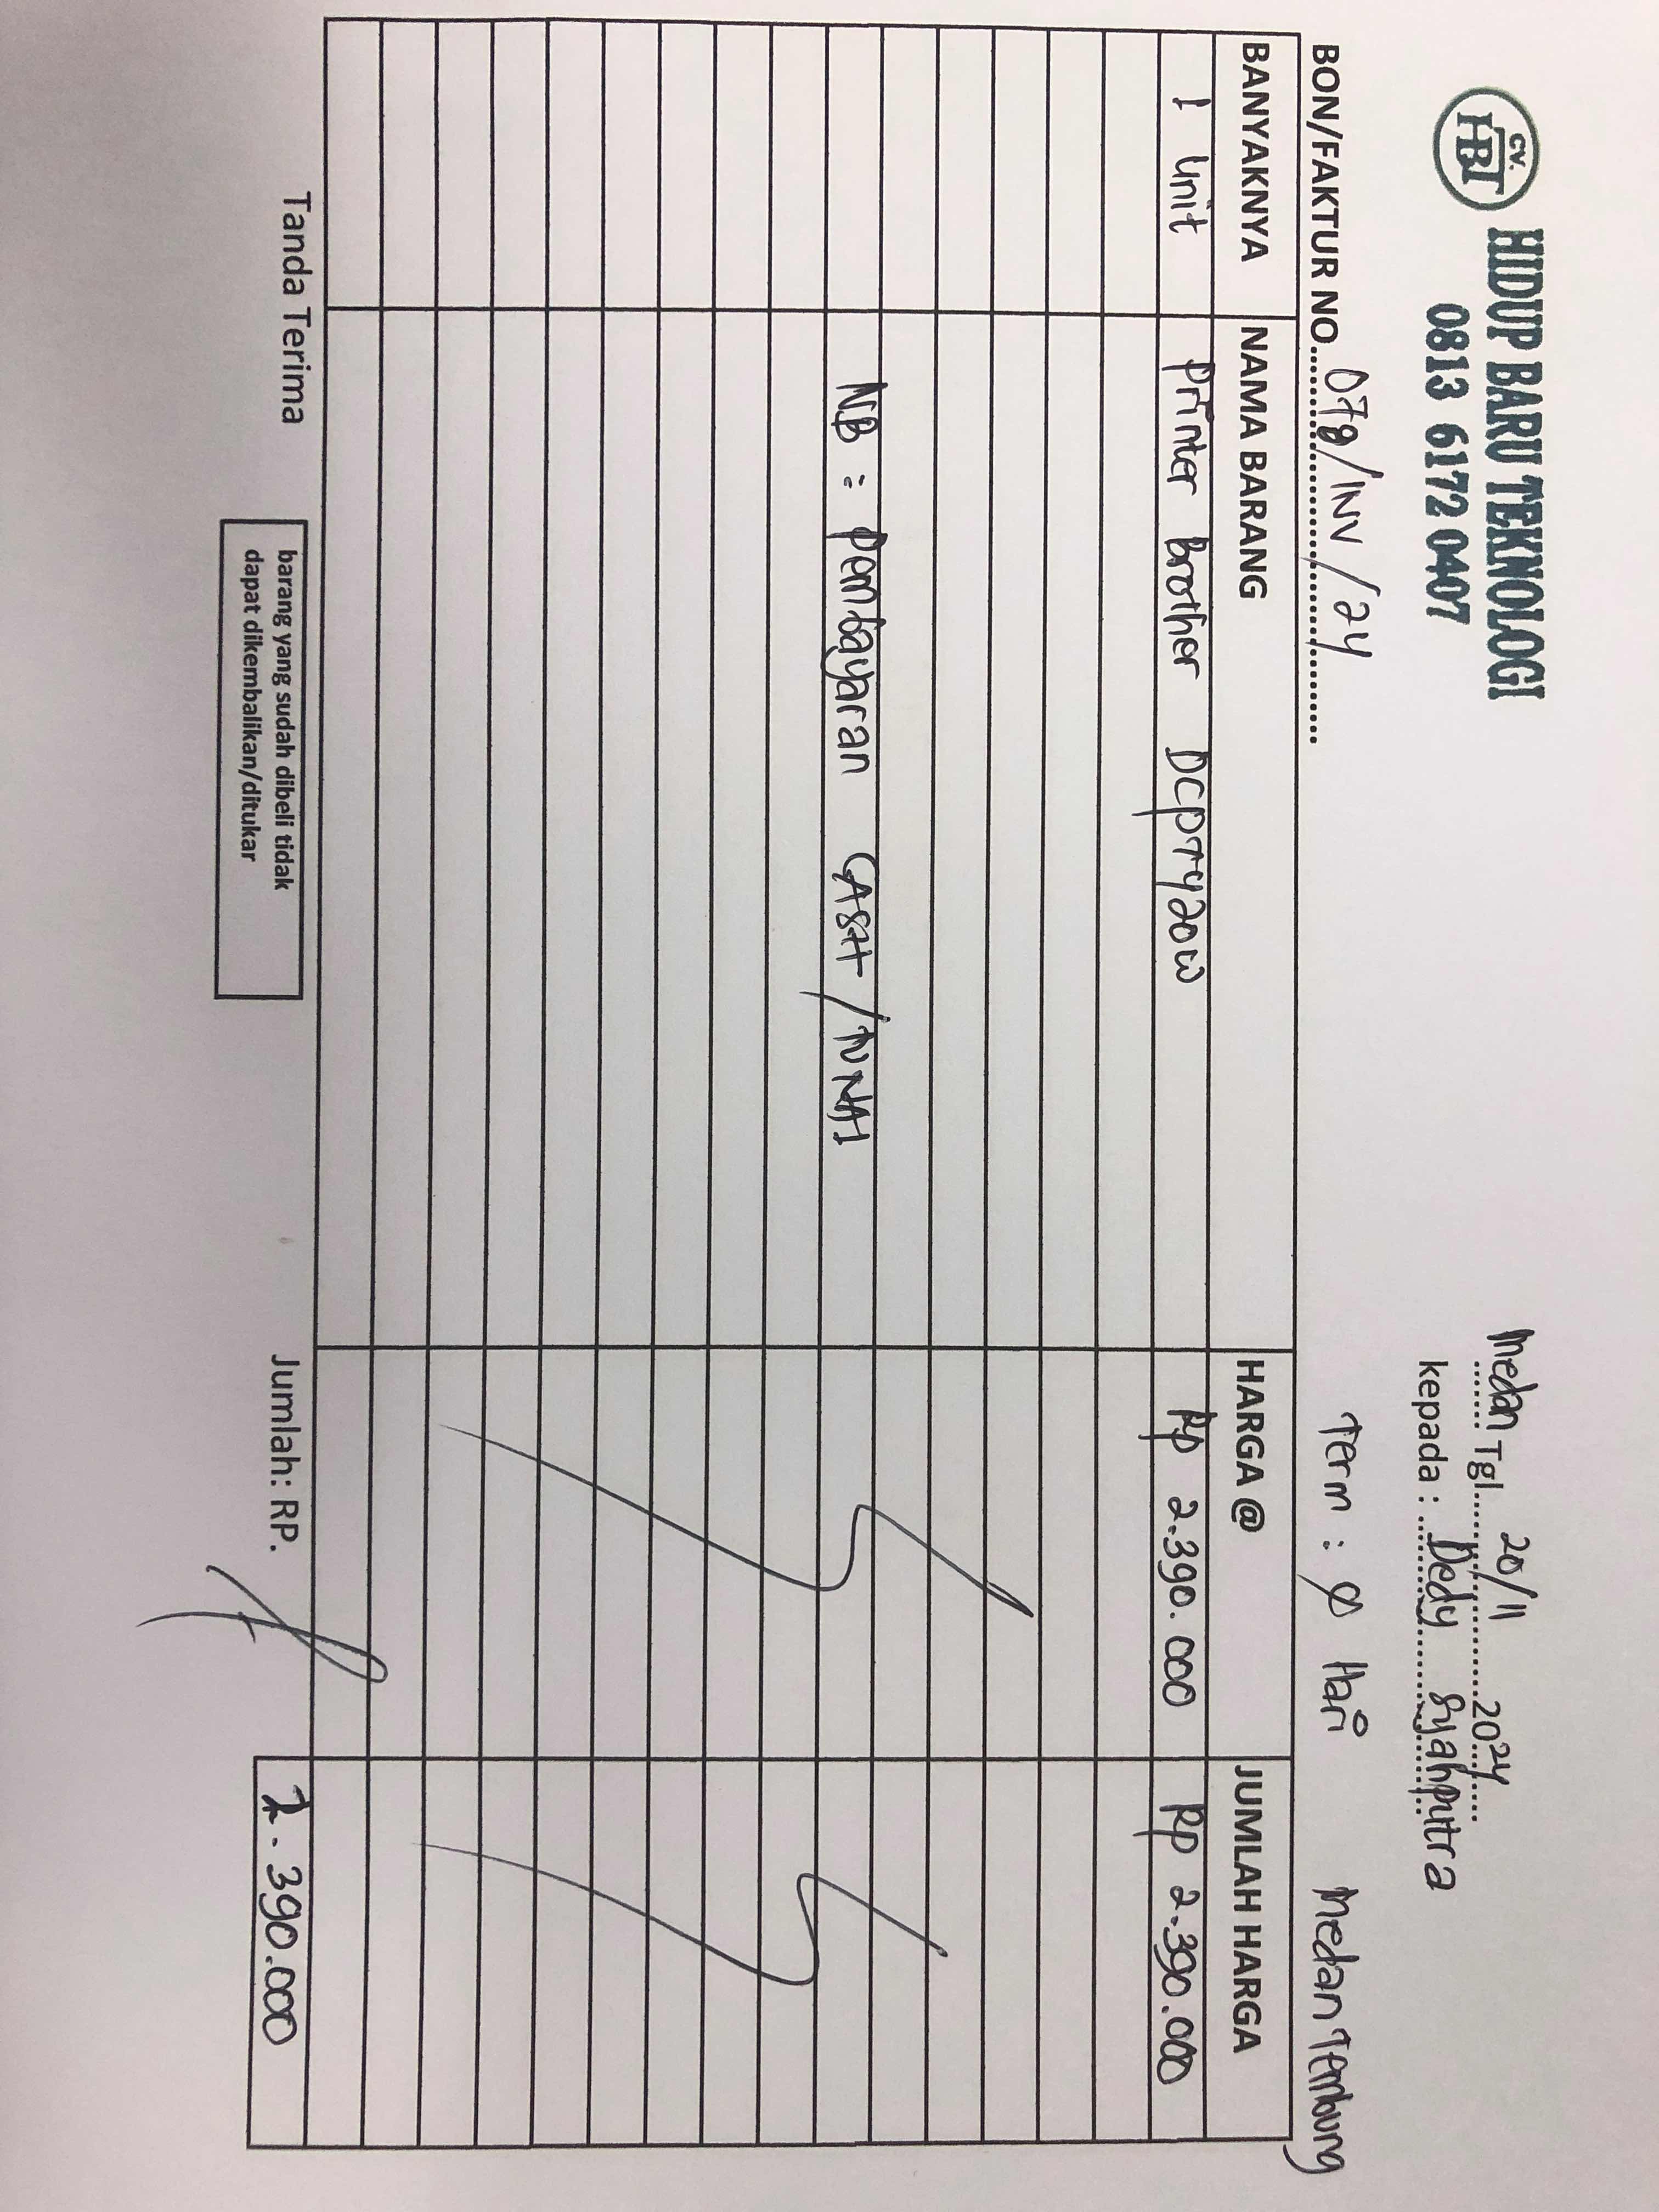 CV. HBT
HIDUP BARU TEKNOLOGI
0813 6172 0407
Medan Tgl. 20/11 2024
kepada : Dedy Syahputra
BON/FAKTUR NO. 078/INV/24
Term : 0 Hari
Medan Tembung
BANYAKNYA NAMA BARANG HARGA @ JUMLAH HARGA
1 Unit Printer Brother DCPT420W Rp 2.390.000 Rp 2.390.000
NB : Pembayaran CASH / TUNAI
Tanda Terima
barang yang sudah dibeli tidak
dapat dikembalikan/ditukar
Jumlah: RP. 2.390.000